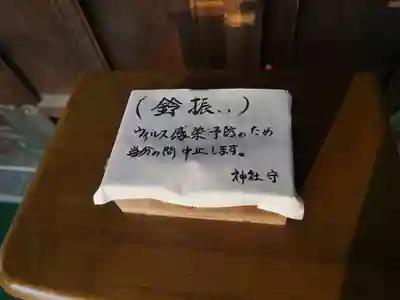 (鈴振..)
ウィルス感染予防のため
当分の間中止します。
神社守